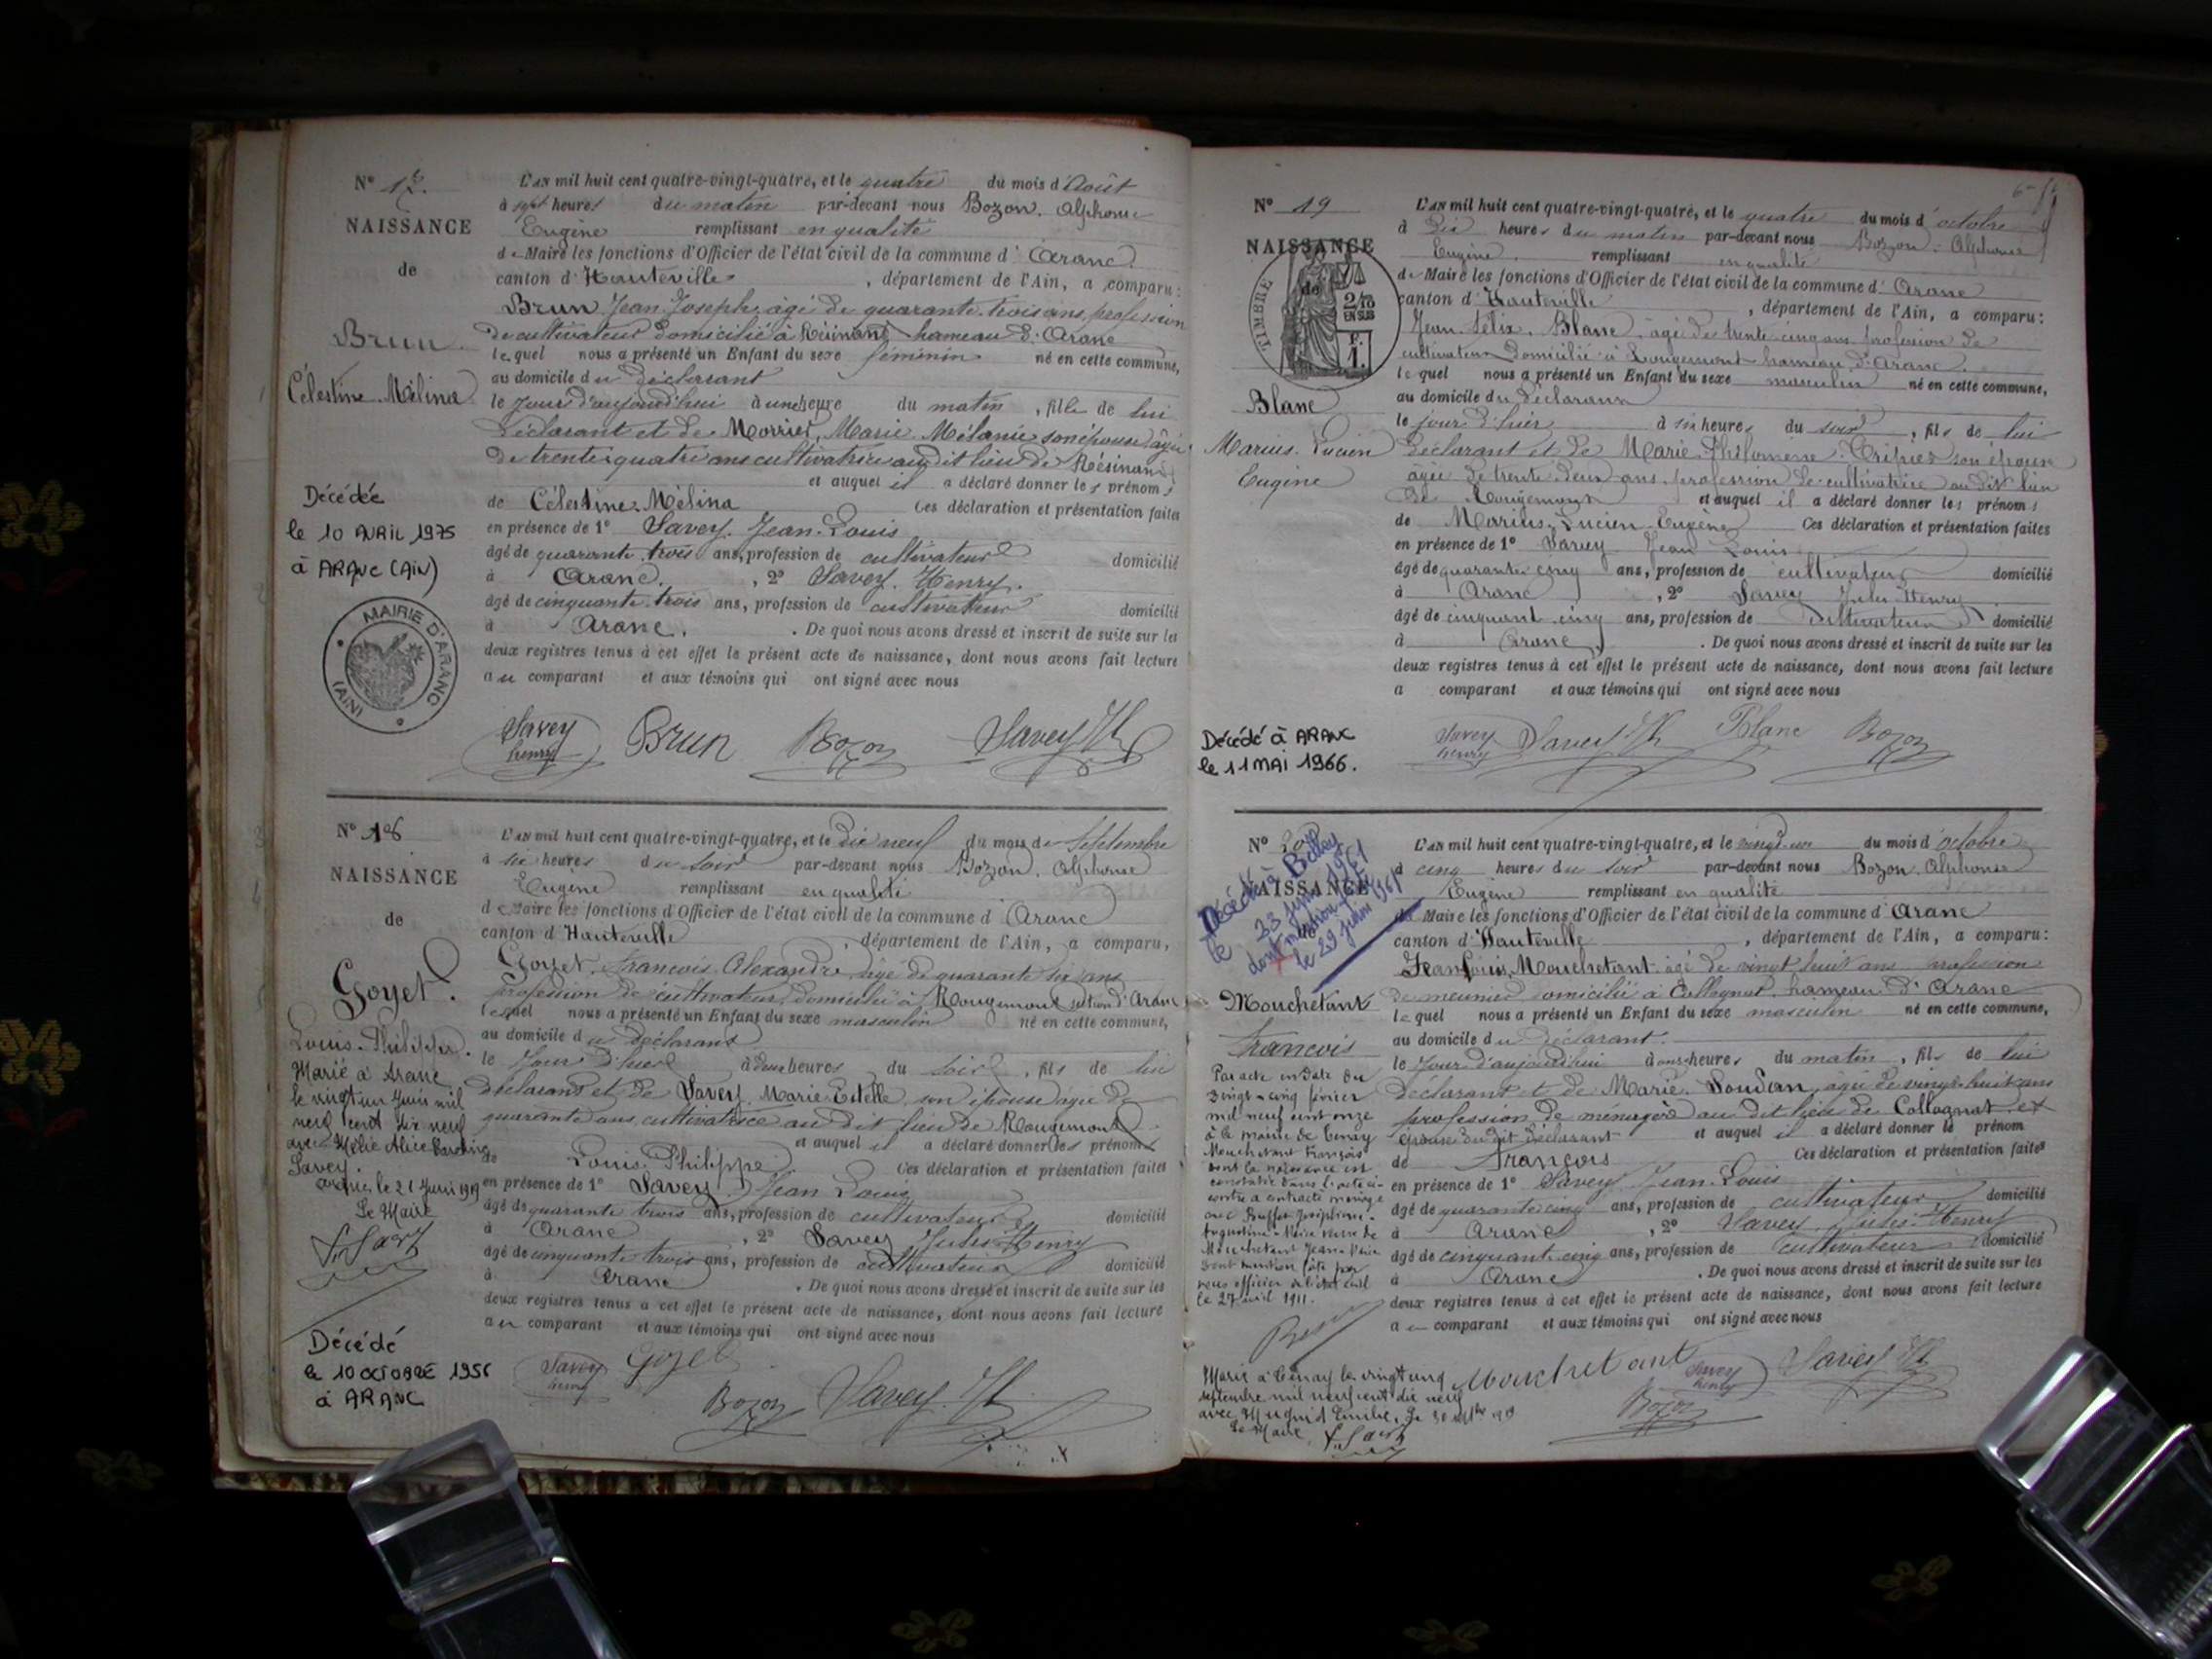 Nº 17.
NAISSANCE
de
Brun
Célestine Mélina
Décédée
le 10 AVRIL 1975
à ARANC (AIN)
MAIRIE D'ARANC
(AIN)
L'AN mil huit cent quatre-vingt-quatre, et le quatre du mois d'Août
à sept heures du matin par-devant nous Bozon, Alphonse
Eugène remplissant en qualité
de Maire les fonctions d'Officier de l'état civil de la commune d'Aranc
canton d'Hauteville, département de l'Ain, a comparu:
Brun Jean Joseph, âgé de quarante trois ans, profession
de cultivateur domicilié à Résinand hameau d'Aranc
lequel nous a présenté un Enfant du sexe féminin né en cette commune,
au domicile du déclarant
le jour d'aujourd'hui à une heure du matin, fille de lui
déclarant et de Morrier, Marie Mélanie son épouse âgée
de trente quatre ans cultivatrice audit lieu de Résinand
et auquel il a déclaré donner les prénoms
de Célestine Mélina Ces déclaration et présentation faites
en présence de 1º Savey, Jean-Louis
âgé de quarante trois ans, profession de cultivateur domicilié
à Aranc, 2º Savey, Henry.
âgé de cinquante trois ans, profession de cultivateur domicilié
à Aranc. De quoi nous avons dressé et inscrit de suite sur les
deux registres tenus à cet effet le présent acte de naissance, dont nous avons fait lecture
au comparant et aux témoins qui ont signé avec nous
Savey henry Brun Bozon Savey JL
Nº 18
NAISSANCE
de
Goyet
Louis-Philippe.
Marié à Aranc
le vingt un Juin mil
neuf cent dix neuf
avec
Savey.
le 21 Juin 1919
Le Maire
Décédé
le 10 OCTOBRE 1956
à ARANC
L'AN mil huit cent quatre-vingt-quatre, et le dix neuf du mois de Septembre
à six heures du soir par-devant nous Bozon, Alphonse
Eugène remplissant en qualité
de Maire les fonctions d'Officier de l'état civil de la commune d'Aranc
canton d'Hauteville, département de l'Ain, a comparu,
Goyet, François Alexandre, âgé de quarante six ans
profession de cultivateur, domicilié à Rougemont section d'Aranc
lequel nous a présenté un Enfant du sexe masculin né en cette commune,
au domicile du déclarant
le jour d'hier à deux heures du soir, fils de lui
déclarant et de Savey, Marie Estelle, son épouse âgée de
quarante ans, cultivatrice au dit lieu de Rougemont
et auquel il a déclaré donner les prénoms
de Louis-Philippe Ces déclaration et présentation faites
en présence de 1º Savey, Jean Louis
âgé de quarante trois ans, profession de cultivateur domicilié
à Aranc, 2º Savey Jules-Henry
âgé de cinquante trois ans, profession de cultivateur domicilié
à Aranc. De quoi nous avons dressé et inscrit de suite sur les
deux registres tenus à cet effet le présent acte de naissance, dont nous avons fait lecture
au comparant et aux témoins qui ont signé avec nous
Savey henry Goyet
Bozon Savey JL
Nº 19
NAISSANCE
de
TIMBRE
2/10
EN SUS
F.
1.
Blanc
Marius Lucien
Eugène
Décédé à ARANC
le 11 MAI 1966.
L'AN mil huit cent quatre-vingt-quatre, et le quatre du mois d'octobre
à dix heures du matin par-devant nous Bozon Alphonse
Eugène remplissant en qualité
de Maire les fonctions d'Officier de l'état civil de la commune d'Aranc
canton d'Hauteville, département de l'Ain, a comparu:
Jean Félix Blanc, âgé de trente cinq ans, profession de
cultivateur domicilié à Rougemont hameau d'Aranc.
lequel nous a présenté un Enfant du sexe masculin né en cette commune,
au domicile du déclarant
le jour d'hier à six heures du soir, fils de lui
déclarant et de Marie Philomène son épouse
âgée de trente deux ans, profession de cultivatrice au dit lieu
de Rougemont et auquel il a déclaré donner les prénoms
de Marius Lucien Eugène Ces déclaration et présentation faites
en présence de 1º Savey Jean Louis
âgé de quarante cinq ans, profession de cultivateur domicilié
à Aranc, 2º Savey Jules Henry
âgé de cinquante cinq ans, profession de cultivateur domicilié
à Aranc. De quoi nous avons dressé et inscrit de suite sur les
deux registres tenus à cet effet le présent acte de naissance, dont nous avons fait lecture
a comparant et aux témoins qui ont signé avec nous
Savey henry Savey JL Blanc Bozon
Nº 20
NAISSANCE
de
Décédé à Belley
le 23 juin 1961
dont mention
le 29 juin 1961
Mouchetant
François
Par acte en date du
vingt-cinq février
mil neuf cent onze
à la mairie de Tenay
Mouchetant François
dont la naissance est
constatée dans l'acte ci-
contre a contracté mariage
avec Buffet Joséphine-
Mouchetant Jean-
dont mention faite par
nous officier de l'état civil
le 27 avril 1911.
Marié à Tenay le vingt cinq
septembre mil neuf cent dix neuf
avec
Le Maire
L'AN mil huit cent quatre-vingt-quatre, et le vingt-un du mois d'octobre
à cinq heures du soir par-devant nous Bozon Alphonse
Eugène remplissant en qualité
de Maire les fonctions d'Officier de l'état civil de la commune d'Aranc
canton d'Hauteville, département de l'Ain, a comparu:
Jean Louis Mouchetant âgé de vingt huit ans profession
de meunier domicilié à Collognat hameau d'Aranc
lequel nous a présenté un Enfant du sexe masculin né en cette commune,
au domicile du déclarant.
le jour d'aujourd'hui à onze heures du matin, fils de lui
déclarant et de Marie Soudan, âgée de vingt-huit ans
profession de ménagère au dit lieu de Collognat et
épouse du dit déclarant et auquel il a déclaré donner le prénom
de François Ces déclaration et présentation faites
en présence de 1º Savey Jean-Louis
âgé de quarante cinq ans, profession de cultivateur domicilié
à Aranc, 2º Savey Jules-Henry
âgé de cinquante cinq ans, profession de cultivateur domicilié
à Aranc. De quoi nous avons dressé et inscrit de suite sur les
deux registres tenus à cet effet le présent acte de naissance, dont nous avons fait lecture
au comparant et aux témoins qui ont signé avec nous
Mouchetant Savey henry Savey JL
Bozon